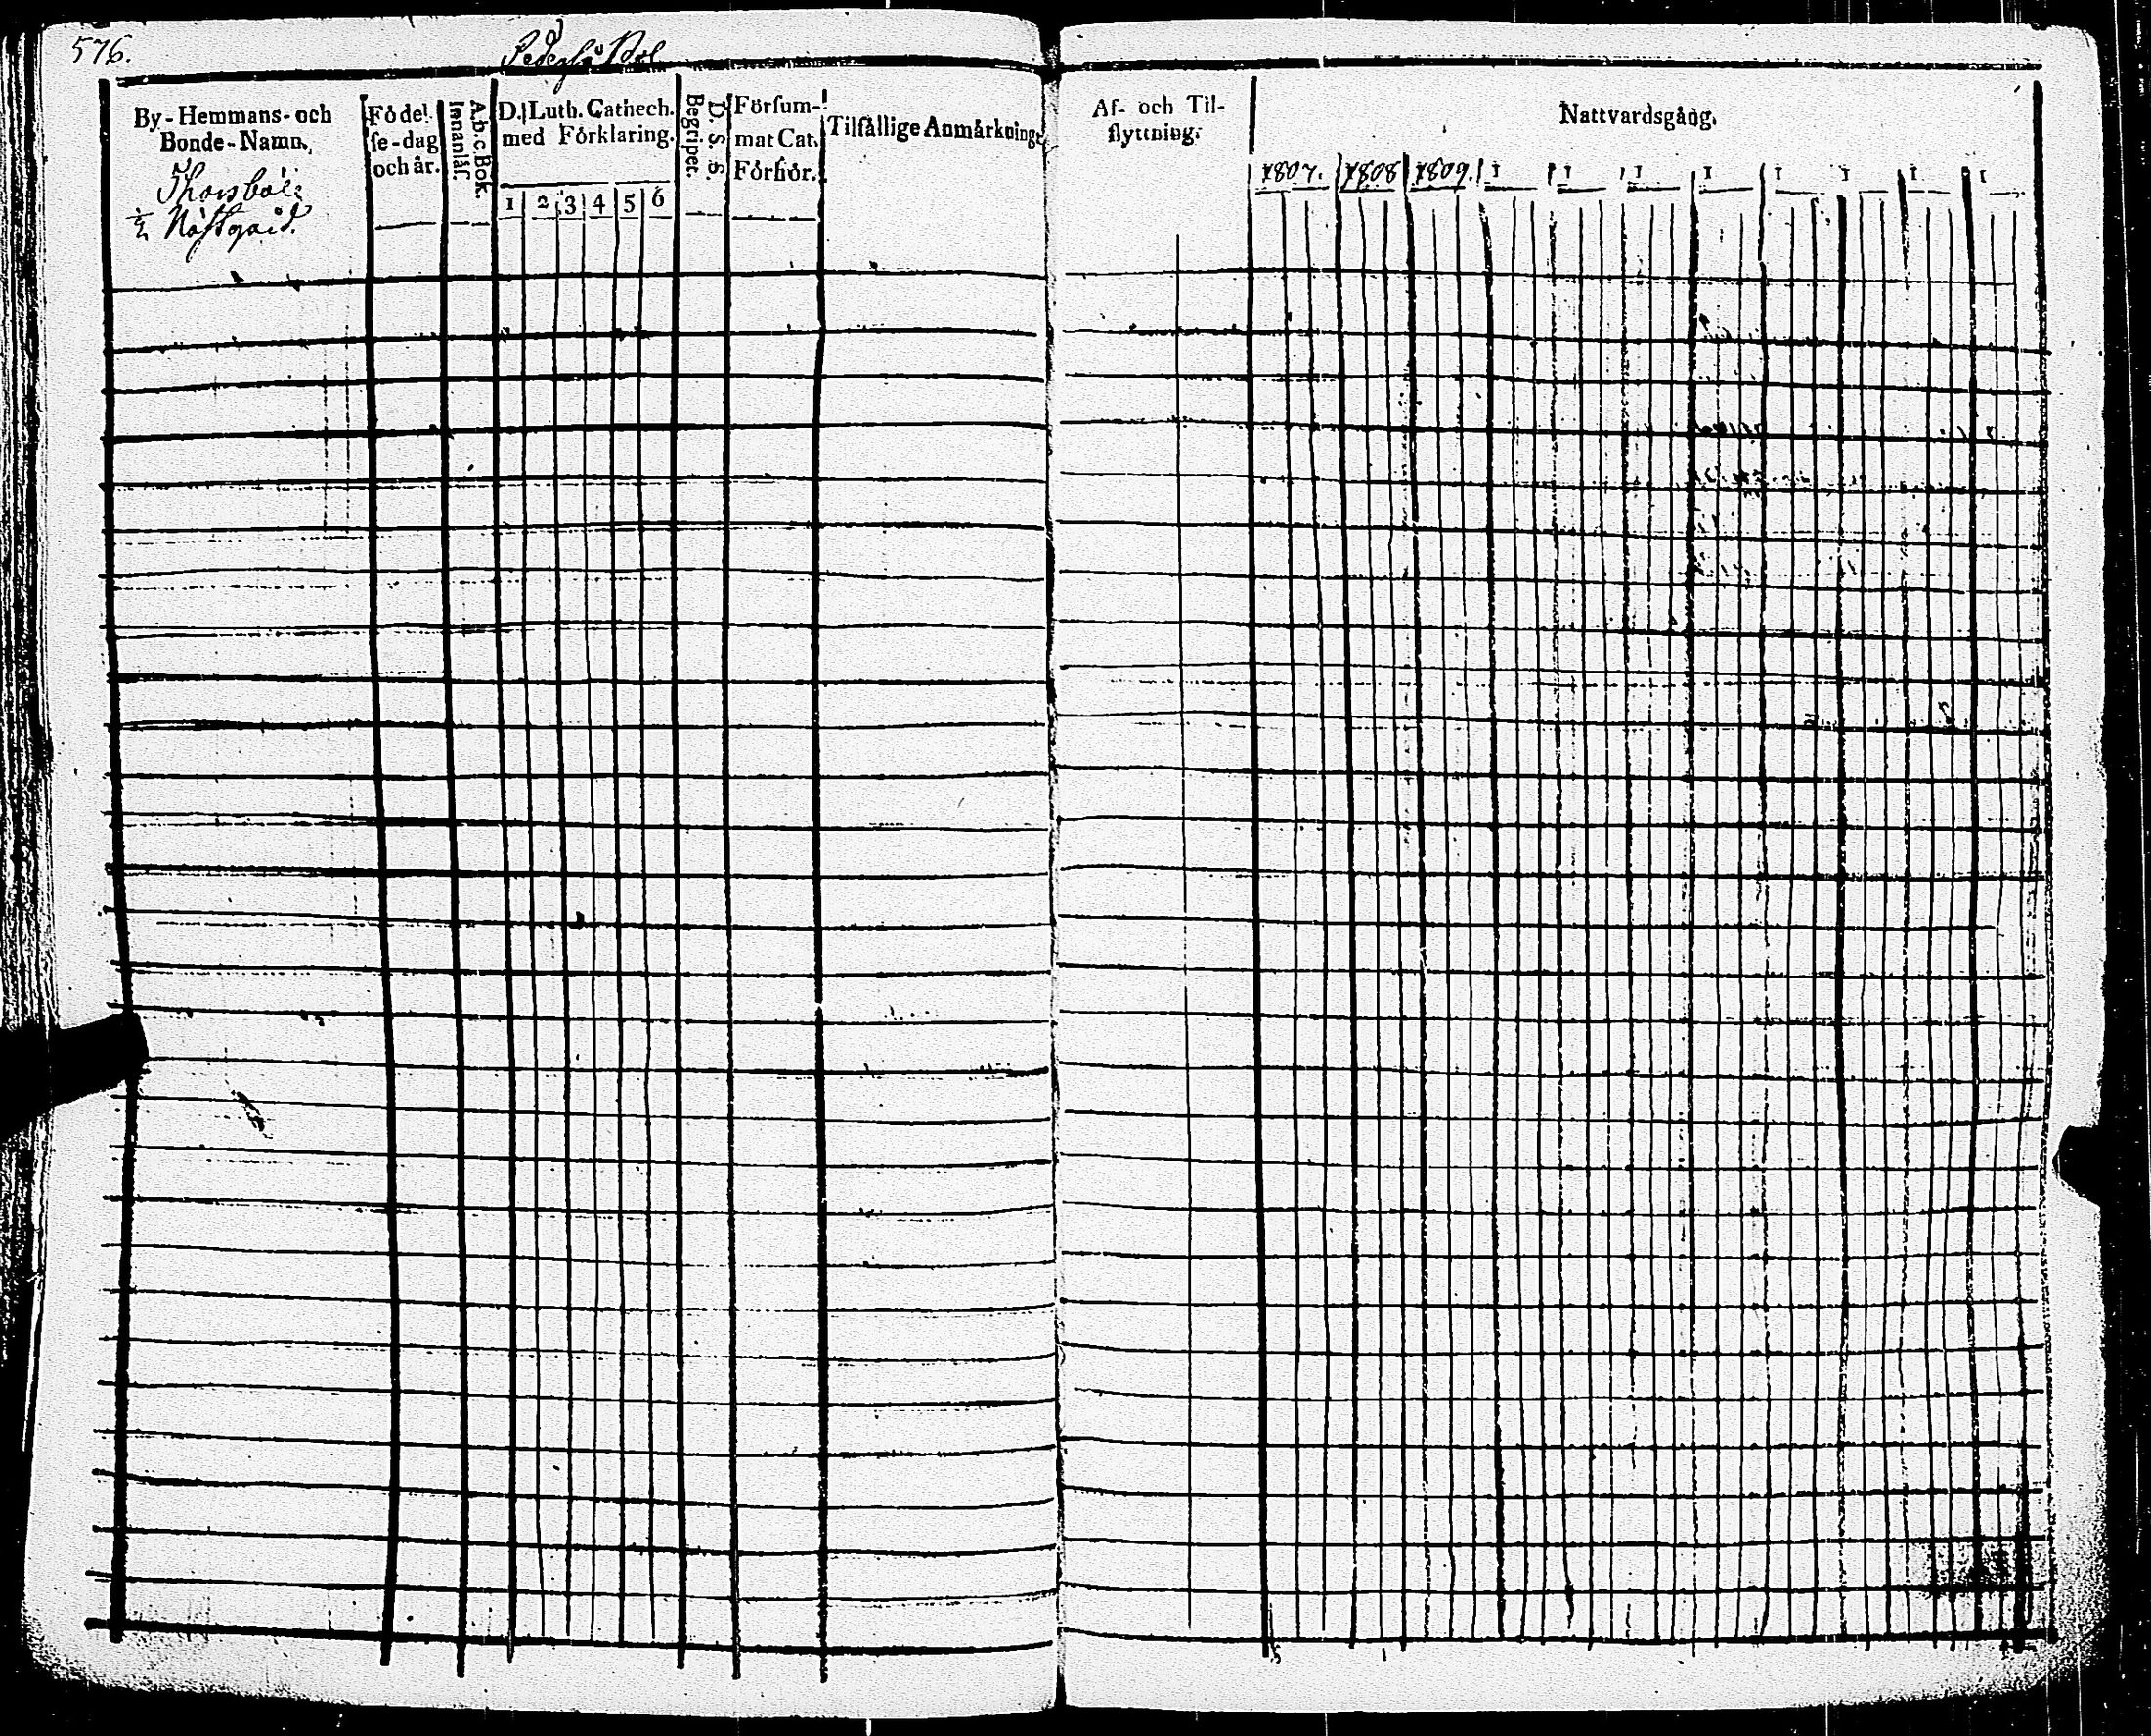 576.
By-Hemmans- och
Bonde-Namn.
Födel-
se-dag
och år.
A.b.c.Bok.
Innanläs.
D. Luth. Cathech.
med Förklaring.
1 2 3 4 5 6
D. S. S.
Begriper.
Försum-
mat Cat.
Förhör.
Tilfällige Anmärkningr
Af- och Til-
flyttning.
Nattvardsgång.
1807. 1808 1809. 1 1 1 1 1 1 1 1
Thorsböle
½